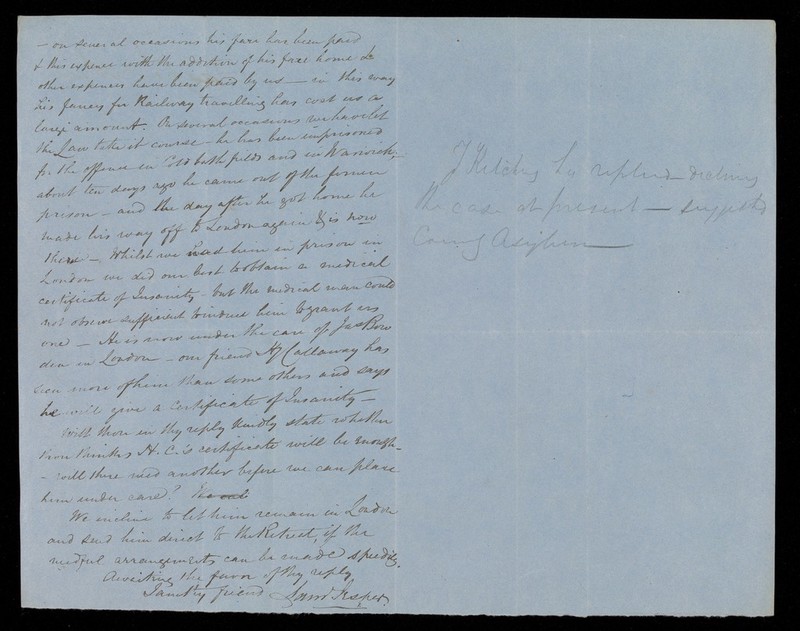 – on several occasions his fare has been paid
& this expence with the addition of his fare home &
other expences have been paid by us – in this way
his fancy for Railway travelling has cost us a
large amount. On several occasions we have let
the Law take it course – he has been imprisoned
for the offence in Cold bath fields and in Warwick,
about ten days ago he came out of the former
prison – and the day after he got home he
made his way off to London again & is now
there – Whilst we had him in prison in
London we did our best to obtain a medical
certificate of Insanity – but the medical man could
not observe sufficient to induce him to grant us
one – He is now under the care of Jas Bow
den in London – our friend Hy Callaway has
seen more of him than some others and says
he will give a certificate of Insanity –
Will thou in thy reply kindly state whether
thou thinks H. C.'s certificate will be enough –
– will there need another before we can place
him under care?
We incline to let him remain in London
and send him direct to the Retreat, if the
needful arrangements can be made speedily.
Awaiting the favor of thy reply
I am thy friend Saml Jesper.
J Kitching replied declining
the case at present – suggested
County Asylum